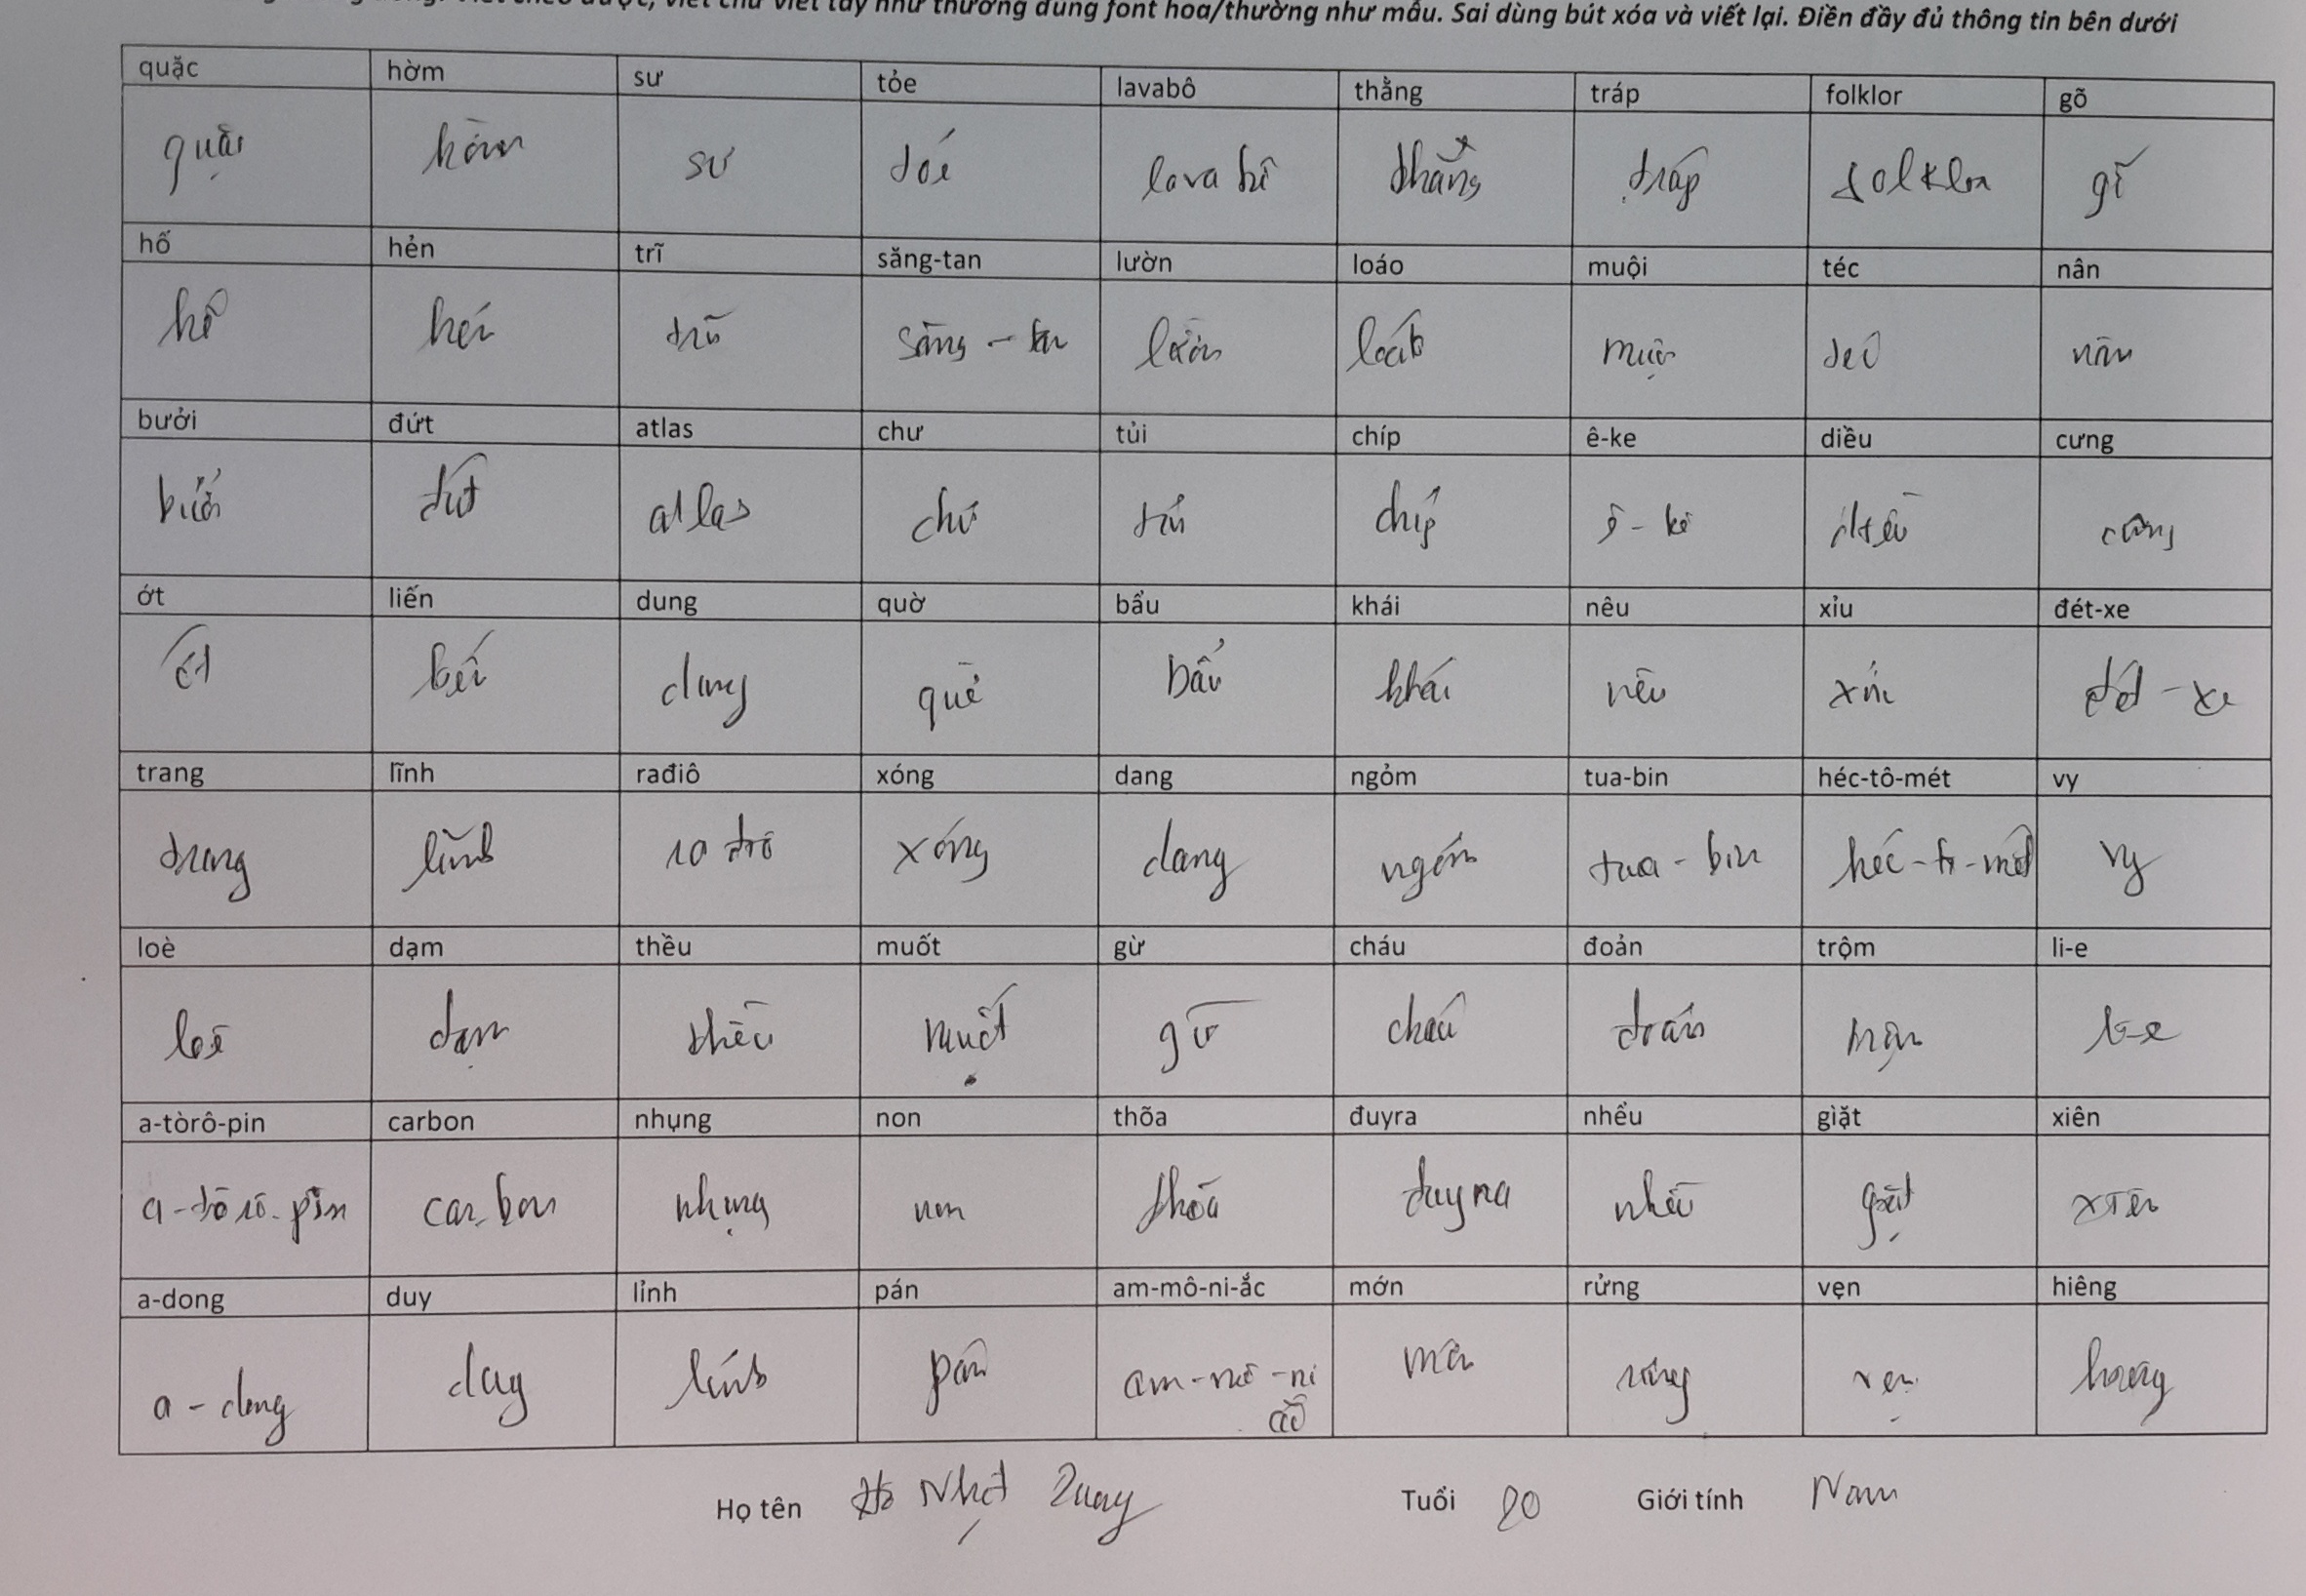 viết chữ viết tay như thường dùng font hoa/thường như mẫu. Sai dùng bút xóa và viết lại. Điền đầy đủ thông tin bên dưới
quặc hờm sư tỏe lavabô thằng tráp folklor gõ
quặc hờm sư tỏe lavabô thằng tráp folklor gõ
hố hẻn trĩ săng-tan lườn loáo muội téc nân
hố hẻn trĩ săng-tan lườn loáo muội téc nân
bưởi đứt atlas chư tủi chíp ê-ke diều cưng
bưởi đứt atlas chư tủi chíp ê-ke diều cưng
ớt liến dung quờ bẩu khái nêu xỉu đét-xe
ớt liến dung quờ bẩu khái nêu xỉu đét-xe
trang lĩnh rađiô xóng dang ngỏm tua-bin héc-tô-mét vy
trang lĩnh rađiô xóng dang ngỏm tua-bin héc-tô-mét vy
loè dạm thều muốt gừ cháu đoản trộm li-e
loè dạm thều muốt gừ cháu đoản trộm li-e
a-tòrô-pin carbon nhụng non thõa đuyra nhểu giặt xiên
a-tòrô-pin carbon nhụng non thõa đuyra nhểu giặt xiên
a-dong duy lỉnh pán am-mô-ni-ắc mớn rửng vẹn hiêng
a-dong duy lỉnh pán am-mô-ni mớn rửng vẹn hiêng
ắc
Họ tên Hồ Nhật Quang Tuổi 20 Giới tính Nam